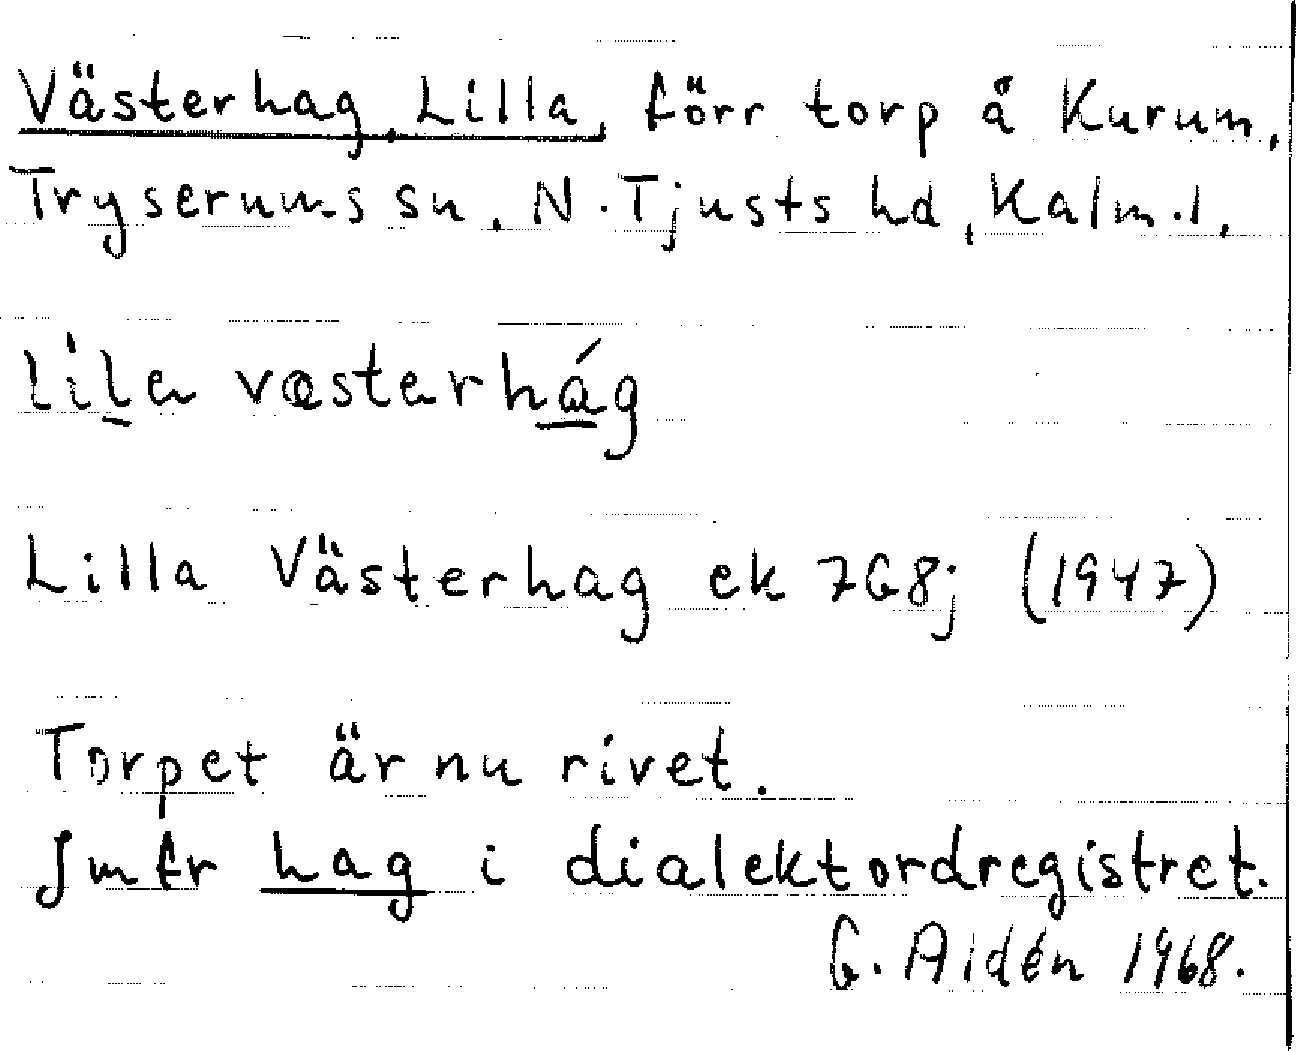 Västerhag, Lilla, förr torp å Kurum,
Tryserums sn, N. Tjusts hd, Kalm. l.
lila væsterhág
Lilla Västerhag ek 7G8j (1947)
Torpet är nu rivet.
Jmfr hag i dialektordregistret.
G. Aidén 1968.